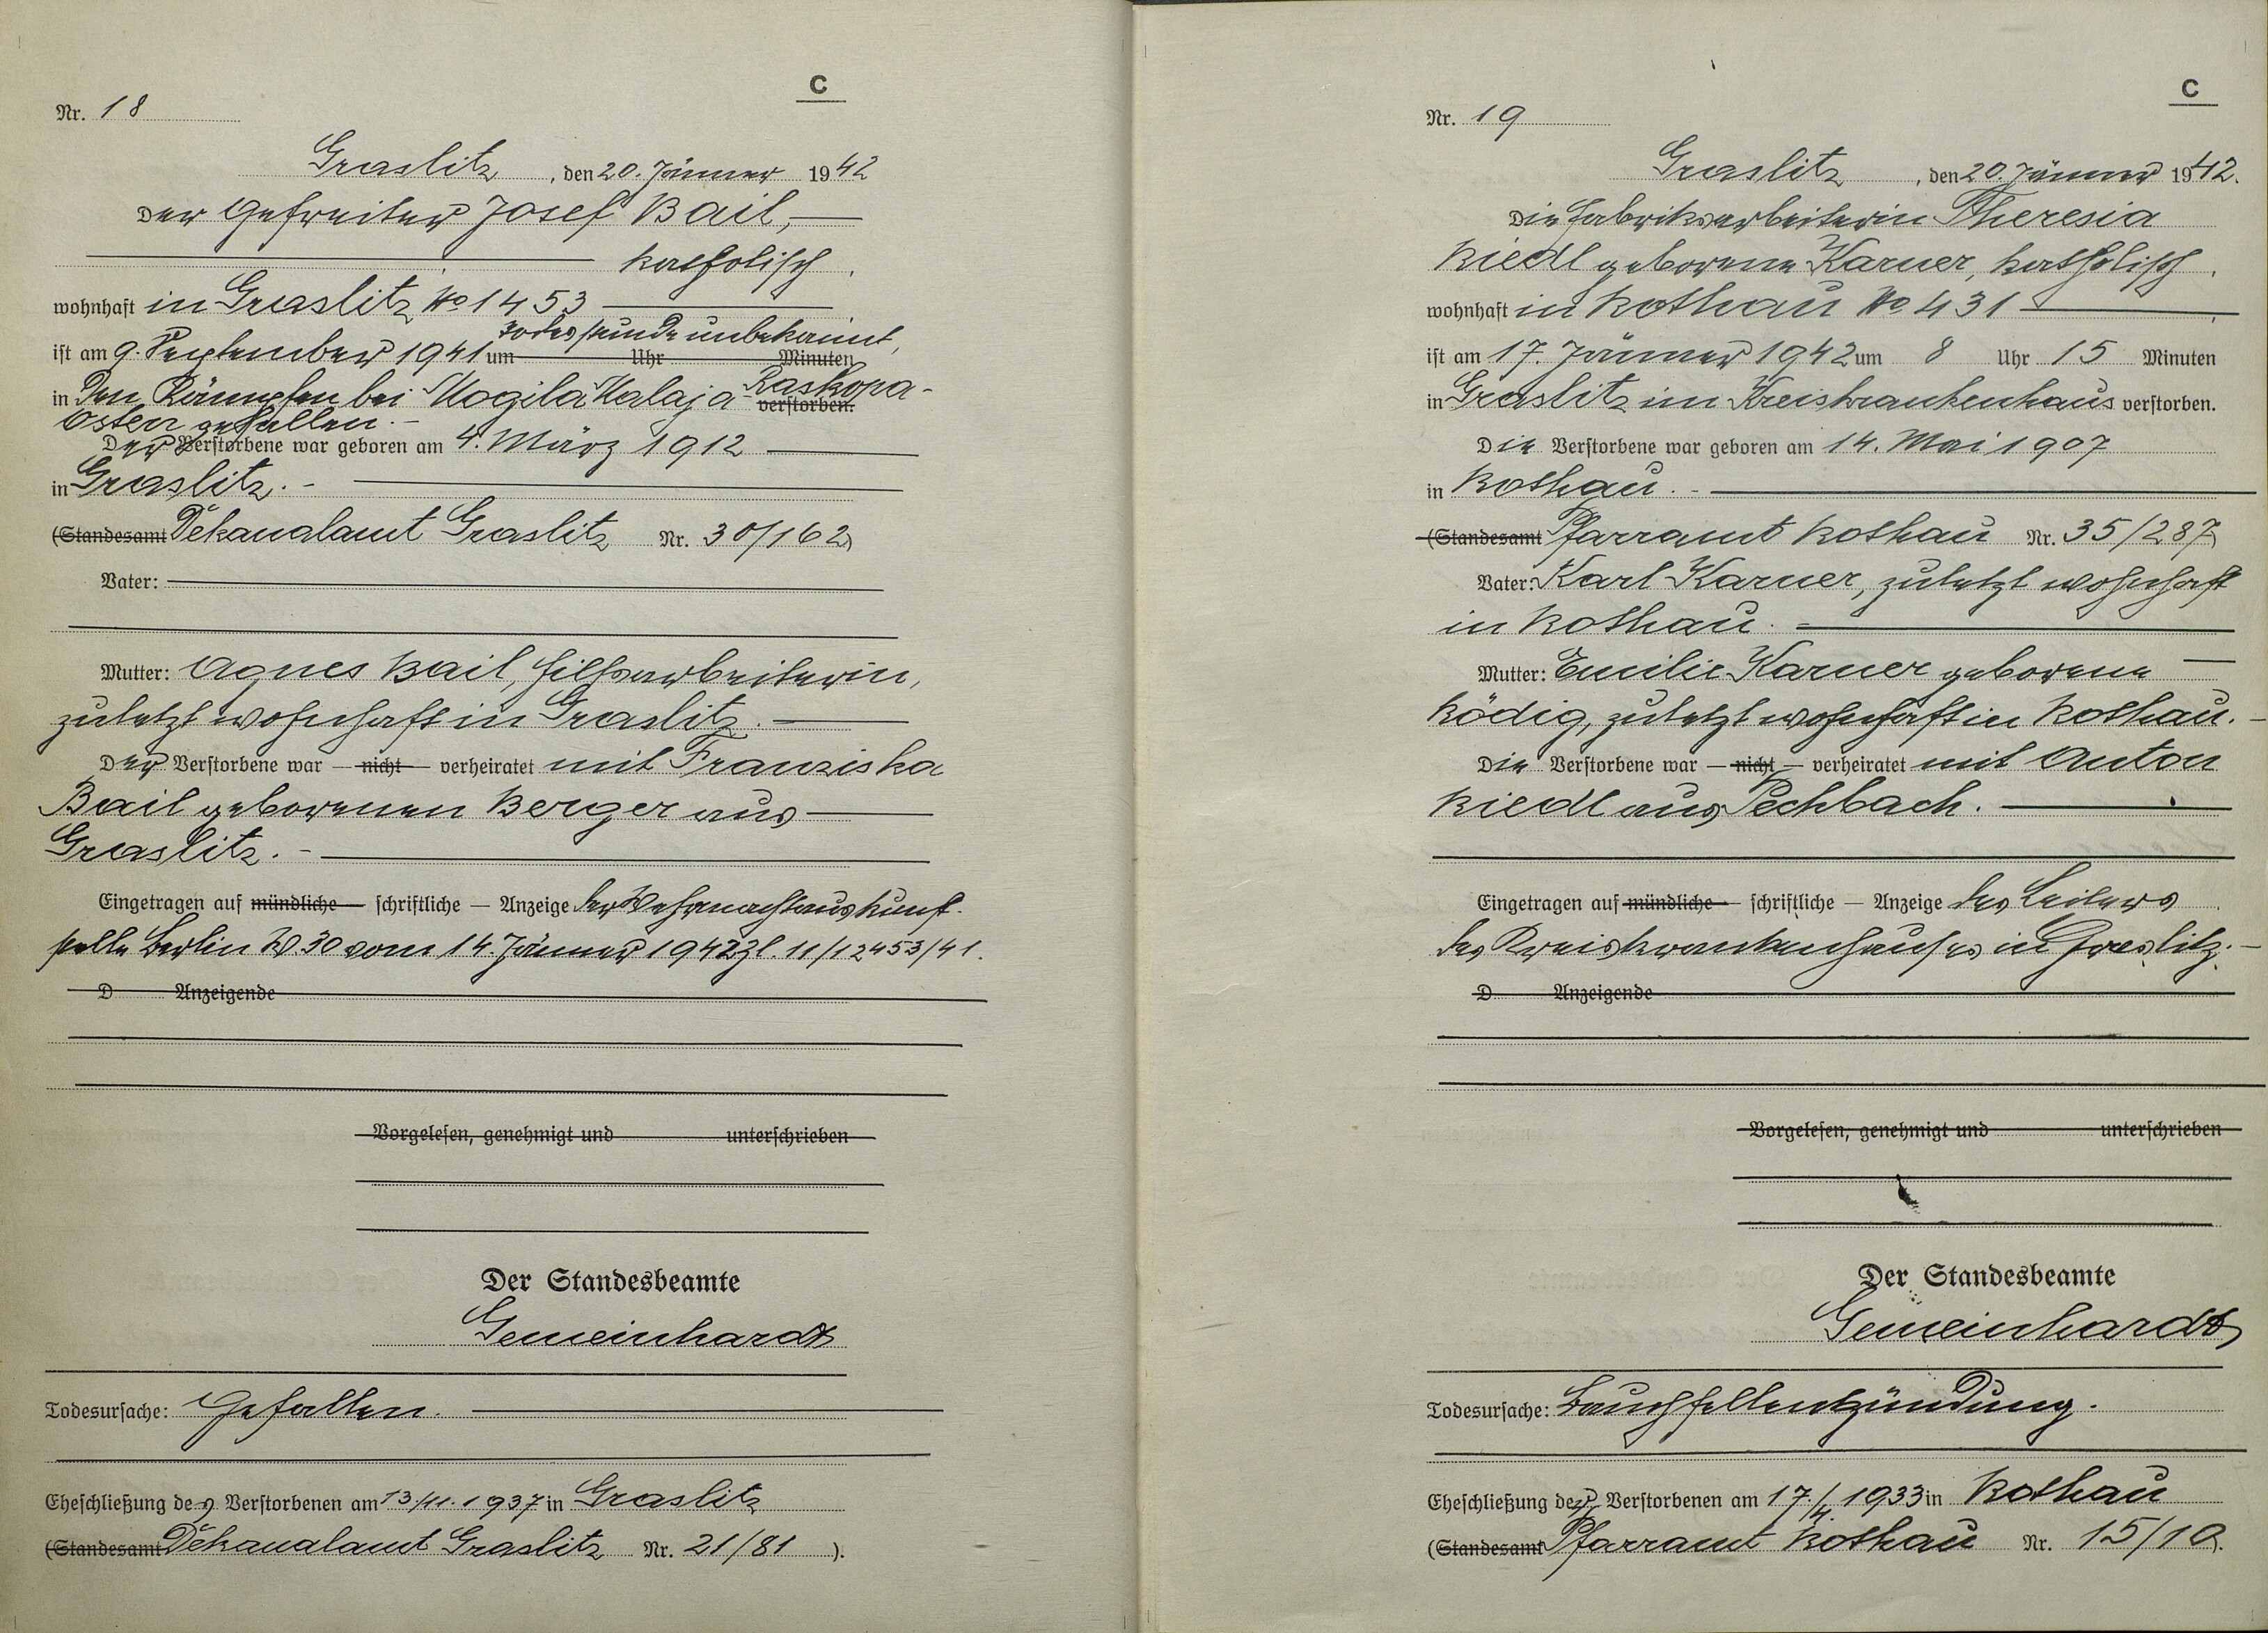 C
Nr. 18
Graslitz, den 20. Jänner 1942
Der Gefreiter Josef Bail,
katholisch,
wohnhaft in Graslitz No 1453
Todesstunde unbekannt,
ist am 9. September 1941 um Uhr Minuten
in den Kämpfen bei Mogila Malaja-Raskopa- verstorben.
Osten gefallen.-
Der Verstorbene war geboren am 4. März 1912
in Graslitz.-
(Standesamt Dekanalamt Graslitz Nr. 30/162)
Vater:
Mutter: Agnes Bail, Hilfsarbeiterin,
zuletzt wohnhaft in Graslitz.
Der Verstorbene war — nicht — verheiratet mit Franziska
Bail geborenen Berger aus
Graslitz.-
Eingetragen auf mündliche — schriftliche — Anzeige der Wehrmachtauskunft-
stelle Berlin W. 30 vom 14. Jänner 1942 Zl. 11/12453/41.
D Anzeigende
Vorgelesen, genehmigt und unterschrieben
Der Standesbeamte
Gemeinhardt
Todesursache: Gefallen.
Eheschließung des Verstorbenen am 13/11. 1937 in Graslitz
(Standesamt Dekanalamt Graslitz Nr. 21/81 ).
C
Nr. 19
Graslitz, den 20. Jänner 1942.
Die Fabriksarbeiterin Theresia
Riedl geborene Karner, katholisch,
wohnhaft in Rothau No 431
ist am 17. Jänner 1942 um 8 Uhr 15 Minuten
in Graslitz im Kreiskrankenhaus verstorben.
Die Verstorbene war geboren am 14. Mai 1907
in Rothau.-
(Standesamt Pfarramt Rothau Nr. 35/287)
Vater: Karl Karner, zuletzt wohnhaft
in Rothau.
Mutter: Emilie Karner geborene
Ködig, zuletzt wohnhaft in Rothau.-
Die Verstorbene war — nicht — verheiratet mit Anton
Riedl aus Pechbach.
Eingetragen auf mündliche — schriftliche — Anzeige des Leiters
des Kreiskrankenhauses in Graslitz.-
D Anzeigende
Vorgelesen, genehmigt und unterschrieben
Der Standesbeamte
Gemeinhardt
Todesursache: Bauchfellentzündung.
Eheschließung der Verstorbenen am 17./4. 1933 in Rothau
(Standesamt Pfarramt Rothau Nr. 15/10).